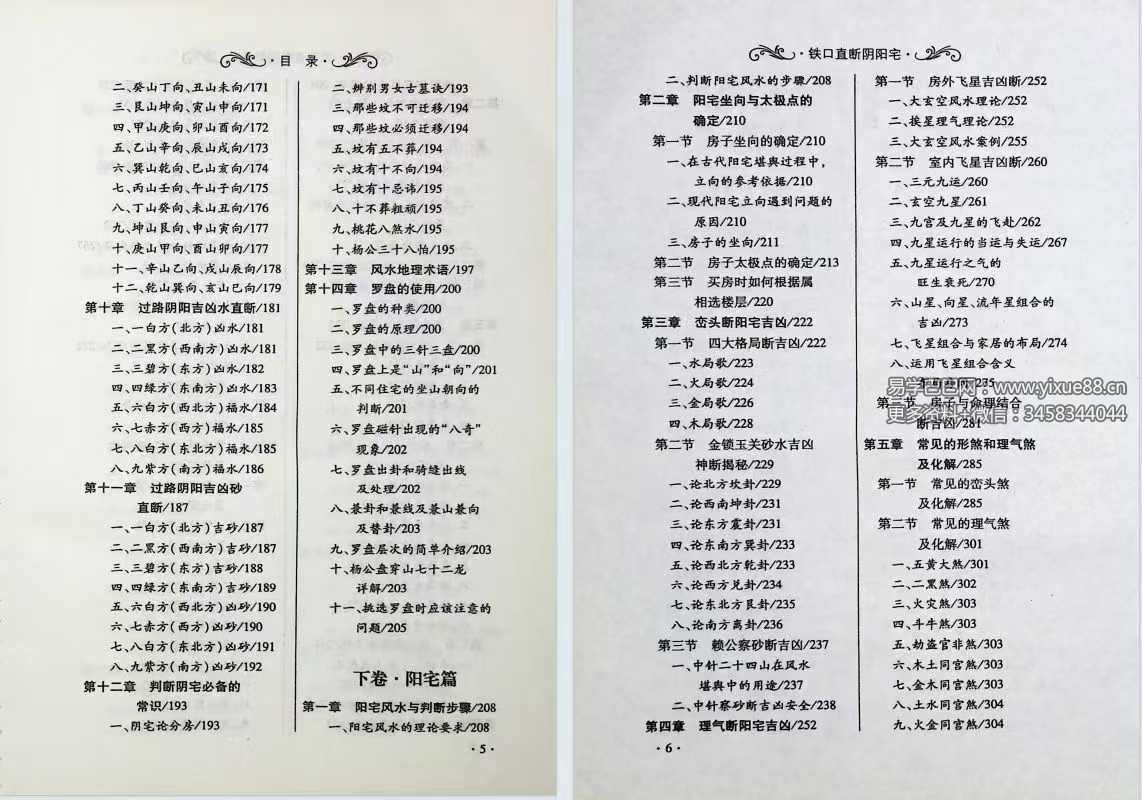 ·目 录·
二、癸山丁向、丑山未向/171
三、艮山坤向、寅山申向/171
四、甲山庚向、卯山酉向/172
五、乙山辛向、辰山戌向/173
六、巽山乾向、巳山亥向/174
七、丙山壬向、午山子向/175
八、丁山癸向、未山丑向/176
九、坤山艮向、申山寅向/177
十、庚山甲向、酉山卯向/177
十一、辛山乙向、戌山辰向/178
十二、乾山巽向、亥山巳向/179
第十章 过路阴阳吉凶水直断/181
一、一白方(北方)凶水/181
二、二黑方(西南方)凶水/181
三、三碧方(东方)凶水/182
四、四绿方(东南方)凶水/183
五、六白方(西北方)福水/184
六、七赤方(西方)福水/185
七、八白方(东北方)福水/185
八、九紫方(南方)福水/186
第十一章 过路阴阳吉凶砂
直断/187
一、一白方(北方)吉砂/187
二、二黑方(西南方)吉砂/187
三、三碧方(东方)吉砂/188
四、四绿方(东南方)吉砂/189
五、六白方(西北方)凶砂/190
六、七赤方(西方)凶砂/190
七、八白方(东北方)凶砂/191
八、九紫方(南方)凶砂/192
第十二章 判断阴宅必备的
常识/193
一、阴宅论分房/193
二、辨别男女古墓诀/193
三、那些坟不可迁移/194
四、那些坟必须迁移/194
五、坟有五不葬/194
六、坟有十不向/194
七、坟有十忌讳/195
八、十不葬粗顽/195
九、桃花八煞水/195
十、杨公三十八怕/195
第十三章 风水地理术语/197
第十四章 罗盘的使用/200
一、罗盘的种类/200
二、罗盘的原理/200
三、罗盘中的三针三盘/200
四、罗盘上是“山”和“向”/201
五、不同住宅的坐山朝向的
判断/201
六、罗盘磁针出现的“八奇”
现象/202
七、罗盘出卦和骑缝出线
及处理/202
八、兼卦和兼线及兼山兼向
及替卦/203
九、罗盘层次的简单介绍/203
十、杨公盘穿山七十二龙
详解/203
十一、挑选罗盘时应该注意的
问题/205
下卷·阳宅篇
第一章 阳宅风水与判断步骤/208
一、阳宅风水的理论要求/208
·5·
·铁口直断阴阳宅·
二、判断阳宅风水的步骤/208
第二章 阳宅坐向与太极点的
确定/210
第一节 房子坐向的确定/210
一、在古代阳宅堪舆过程中,
立向的参考依据/210
二、现代阳宅立向遇到问题的
原因/210
三、房子的坐向/211
第二节 房子太极点的确定/213
第三节 买房时如何根据属
相选楼层/220
第三章 峦头断阳宅吉凶/222
第一节 四大格局断吉凶/222
一、水局歌/223
二、火局歌/224
三、金局歌/226
四、木局歌/228
第二节 金锁玉关砂水吉凶
神断揭秘/229
一、论北方坎卦/229
二、论西南坤卦/231
三、论东方震卦/231
四、论东南方巽卦/233
五、论西北方乾卦/233
六、论西方兑卦/234
七、论东北方艮卦/235
八、论南方离卦/236
第三节 赖公察砂断吉凶/237
一、中针二十四山在风水
堪舆中的用途/237
二、中针察砂断吉凶安全/238
第四章 理气断阳宅吉凶/252
第一节 房外飞星吉凶断/252
一、大玄空风水理论/252
二、挨星理气理论/252
三、大玄空风水案例/255
第二节 室内飞星吉凶断/260
一、三元九运/260
二、玄空九星/261
三、九宫及九星的飞赴/262
四、九星运行的当运与失运/267
五、九星运行之气的
旺生衰死/270
六、山星、向星、流年星组合的
吉凶/273
七、飞星组合与家居的布局/274
八、运用飞星组合含义
275
易学巴巴网：www.yixue88.cn
第三节 房子与命理结合
更多资料+微信：3458344044
断吉凶/281
第五章 常见的形煞和理气煞
及化解/285
第一节 常见的峦头煞
及化解/285
第二节 常见的理气煞
及化解/301
一、五黄大煞/301
二、二黑煞/302
三、火灾煞/303
四、斗牛煞/303
五、劫盗官非煞/303
六、木土同宫煞/303
七、金木同宫煞/303
八、土水同宫煞/304
九、火金同宫煞/304
·6·